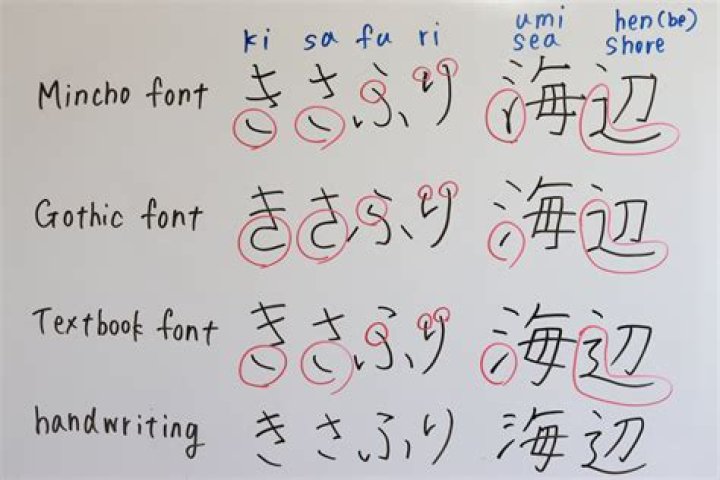 ki sa fu ri umi hen(be)
sea shore
Mincho font きさふり 海辺
Gothic font きさふり 海辺
Textbook font きさふり 海辺
handwriting きさふり 海辺